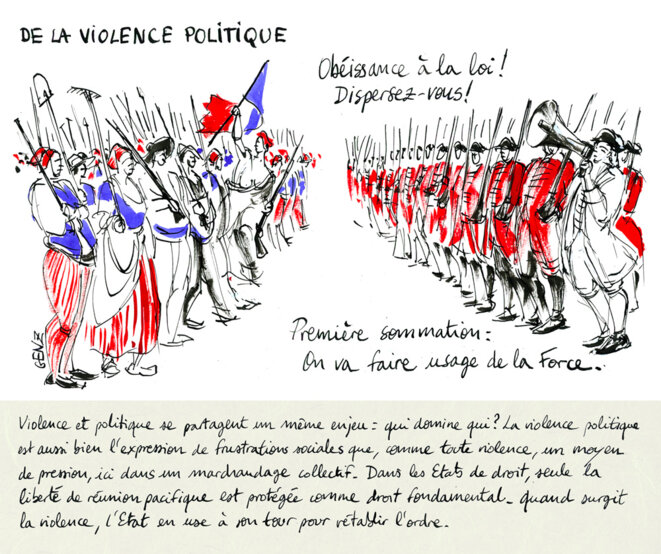 DE LA VIOLENCE POLITIQUE
Obéissance à la loi!
Dispersez-vous!
Première sommation:
On va faire usage de la Force.
GENZ
Violence et politique se partagent un même enjeu = qui domine qui? La violence politique
est aussi bien l'expression de frustrations sociales que, comme toute violence, un moyen
de pression, ici dans un marchandage collectif. Dans les Etats de droit, seule la
liberté de réunion pacifique est protégée comme droit fondamental. Quand surgit
la violence, l'Etat en use à son tour pour rétablir l'ordre.